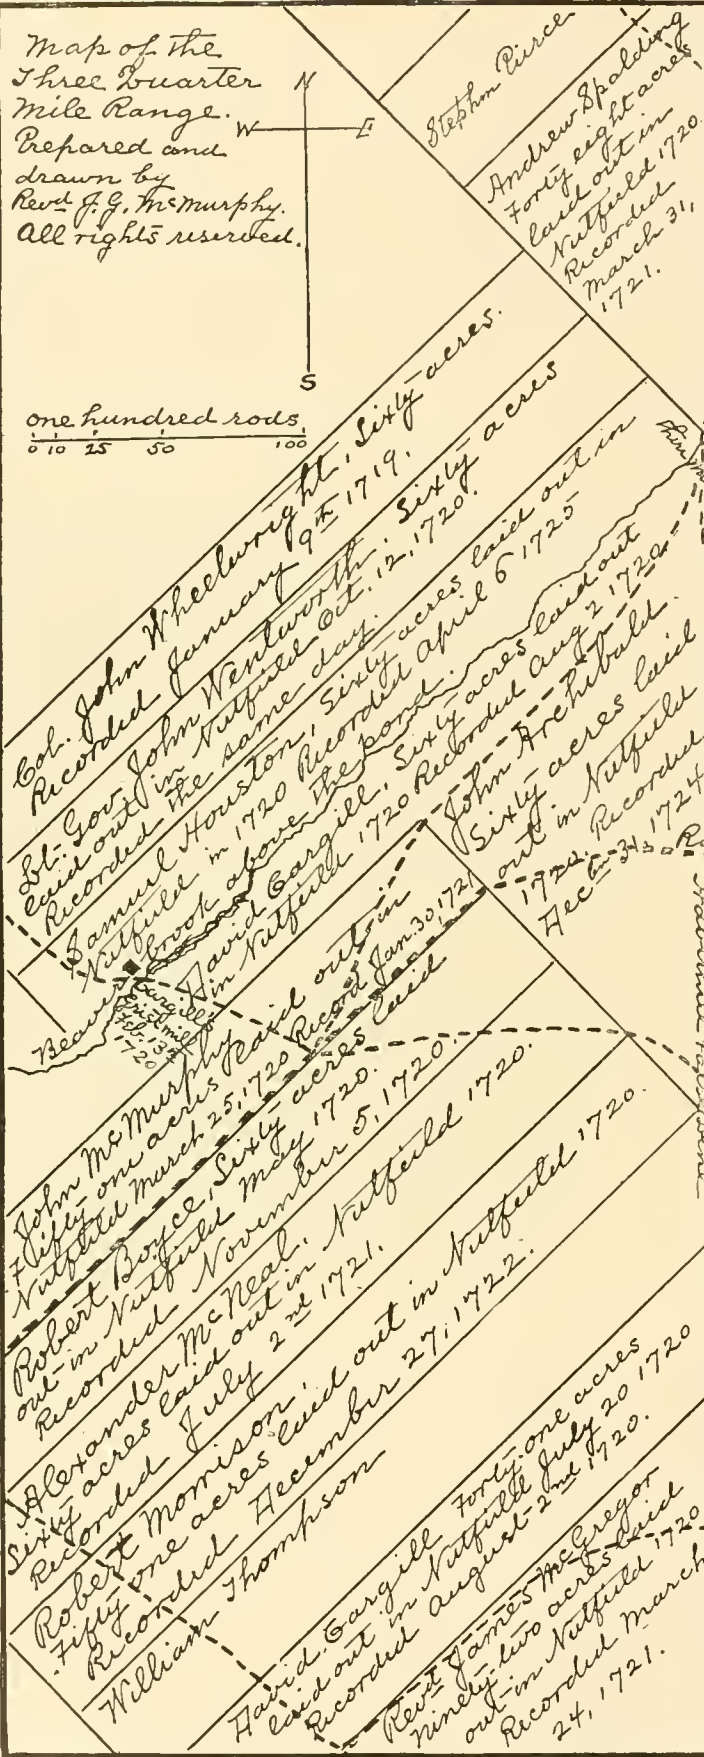 Map of the
Three Quarter
Mile Range.
Prepared and
drawn by
Revd J. G. McMurphy.
All rights reserved.
N
W
E
S
one hundred rods.
0 10 25 50 100
Stephen Pierce
Andrew Spalding
Forty eight acres
laid out in
Nutfield 1720.
Recorded
March 31,
1721.
Col. John Wheelwright, Sixty acres.
Recorded January 9th 1719.
Lt. Gov. John Wentworth. Sixty acres
laid out in Nutfield Oct. 12, 1720.
Recorded the same day.
Samuel Houston, Sixty acres laid out in
Nutfield in 1720 Recorded April 6 1725
brook above the pond.
David Cargill, Sixty acres laid out
in Nutfield 1720 Recorded Aug 2 1720
John Archibald.
Sixty acres laid
out in Nutfield
1720. Recorded
Dec 31 1724
Beaver
Cargill
Grist mill
Feb. 13
1720
John McMurphy
Fifty one acres laid out in
Nutfield March 25, 1720 Record Jan. 30, 1721
Robert Boyce, Sixty acres laid
out in Nutfield May 1720.
Recorded November 5, 1720.
Alexander McNeal,
Sixty acres laid out in Nutfield 1720.
Recorded July 2nd 1721.
Robert Morrison,
Fifty one acres laid out in Nutfield 1720.
Recorded December 27, 1722.
William Thompson
David Cargill Forty one acres
laid out in Nutfield July 20 1720
Recorded August 2nd 1720.
Revd James McGregor
Ninety two acres laid
out in Nutfield 1720
Recorded March
24, 1721.